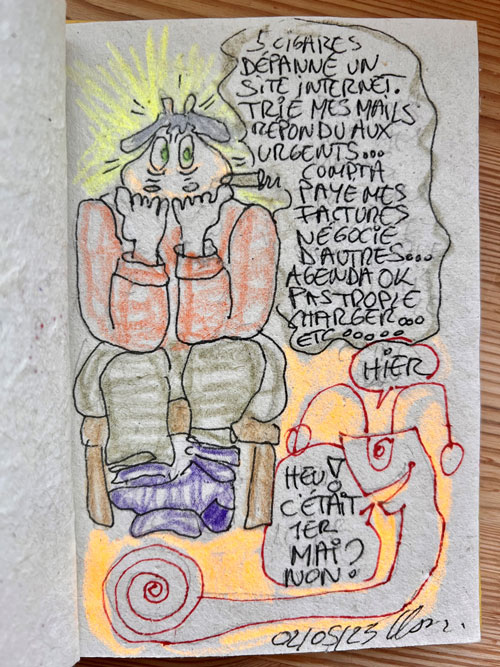 5 CIGARES
DÉPANNE UN
SITE INTERNET.
TRIE MES MAILS
RÉPONDU AUX
URGENTS...
COMPTA
PAYE MES
FACTURES
NÉGOCIE
D'AUTRES...
AGENDA OK
PAS TROP LE
CHARGER...
ETC.....
HIER
HEU!
C'ÉTAIT
1ER
MAI
NON?
02/05/23